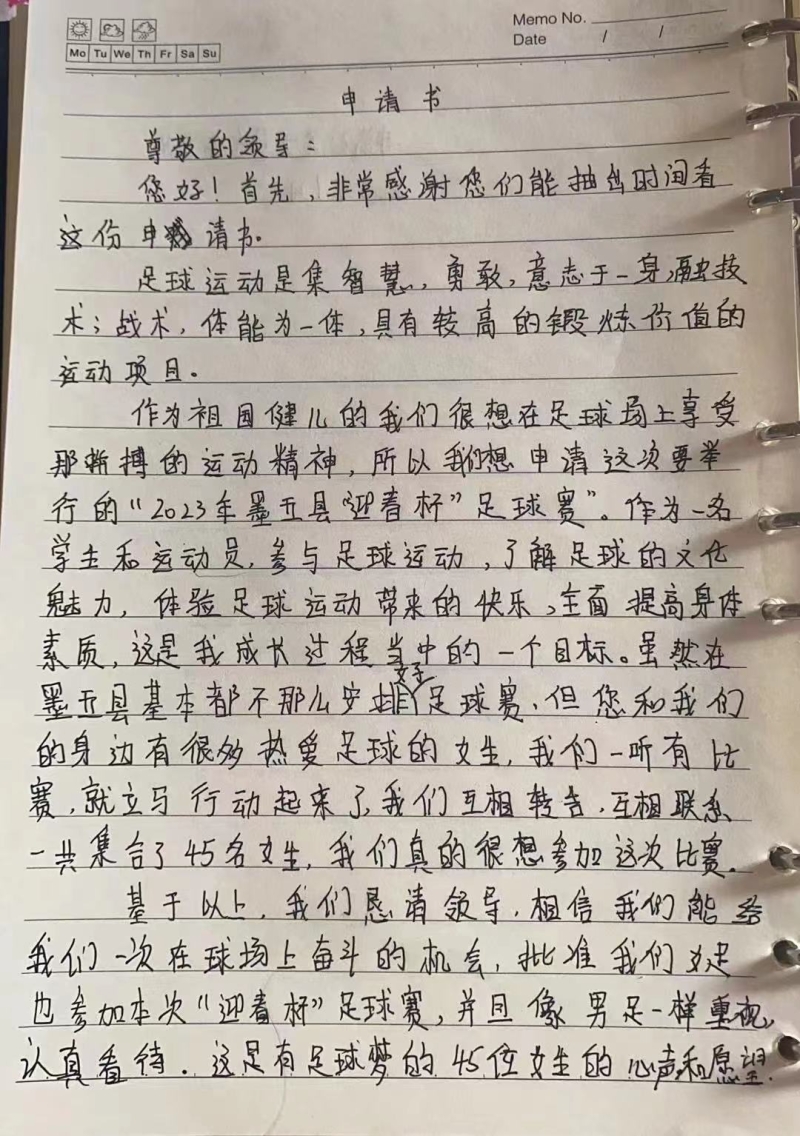 Memo No.
Mo Tu We Th Fr Sa Su
Date / /
申请书
尊敬的领导:
您好!首先,非常感谢您们能抽出时间看
这份申请书.
足球运动是集智慧,勇敢,意志于一身,融技
术;战术,体能为一体,具有较高的锻炼价值的
运动项目。
作为祖国健儿的我们很想在足球场上享受
那拼搏的运动精神,所以我们想申请这次要举
行的“2023年墨玉县“迎春杯”足球赛”。作为一名
学生和运动员,参与足球运动,了解足球的文化
魅力,体验足球运动带来的快乐,全面提高身体
素质,这是我成长过程当中的一个目标。虽然在
墨玉县基本都不那么安排女子足球赛,但您和我们
的身边有很多热爱足球的女生,我们一听有比
赛,就立马行动起来了,我们互相转告,互相联系、
一共集合了45名女生,我们真的很想参加这次比赛.
基于以上,我们恳请领导,相信我们能给
我们一次在球场上奋斗的机会,批准我们女足
也参加本次“迎春杯”足球赛,并且像男足一样重视,
认真看待.这是有足球梦的45位女生的心声和愿望.